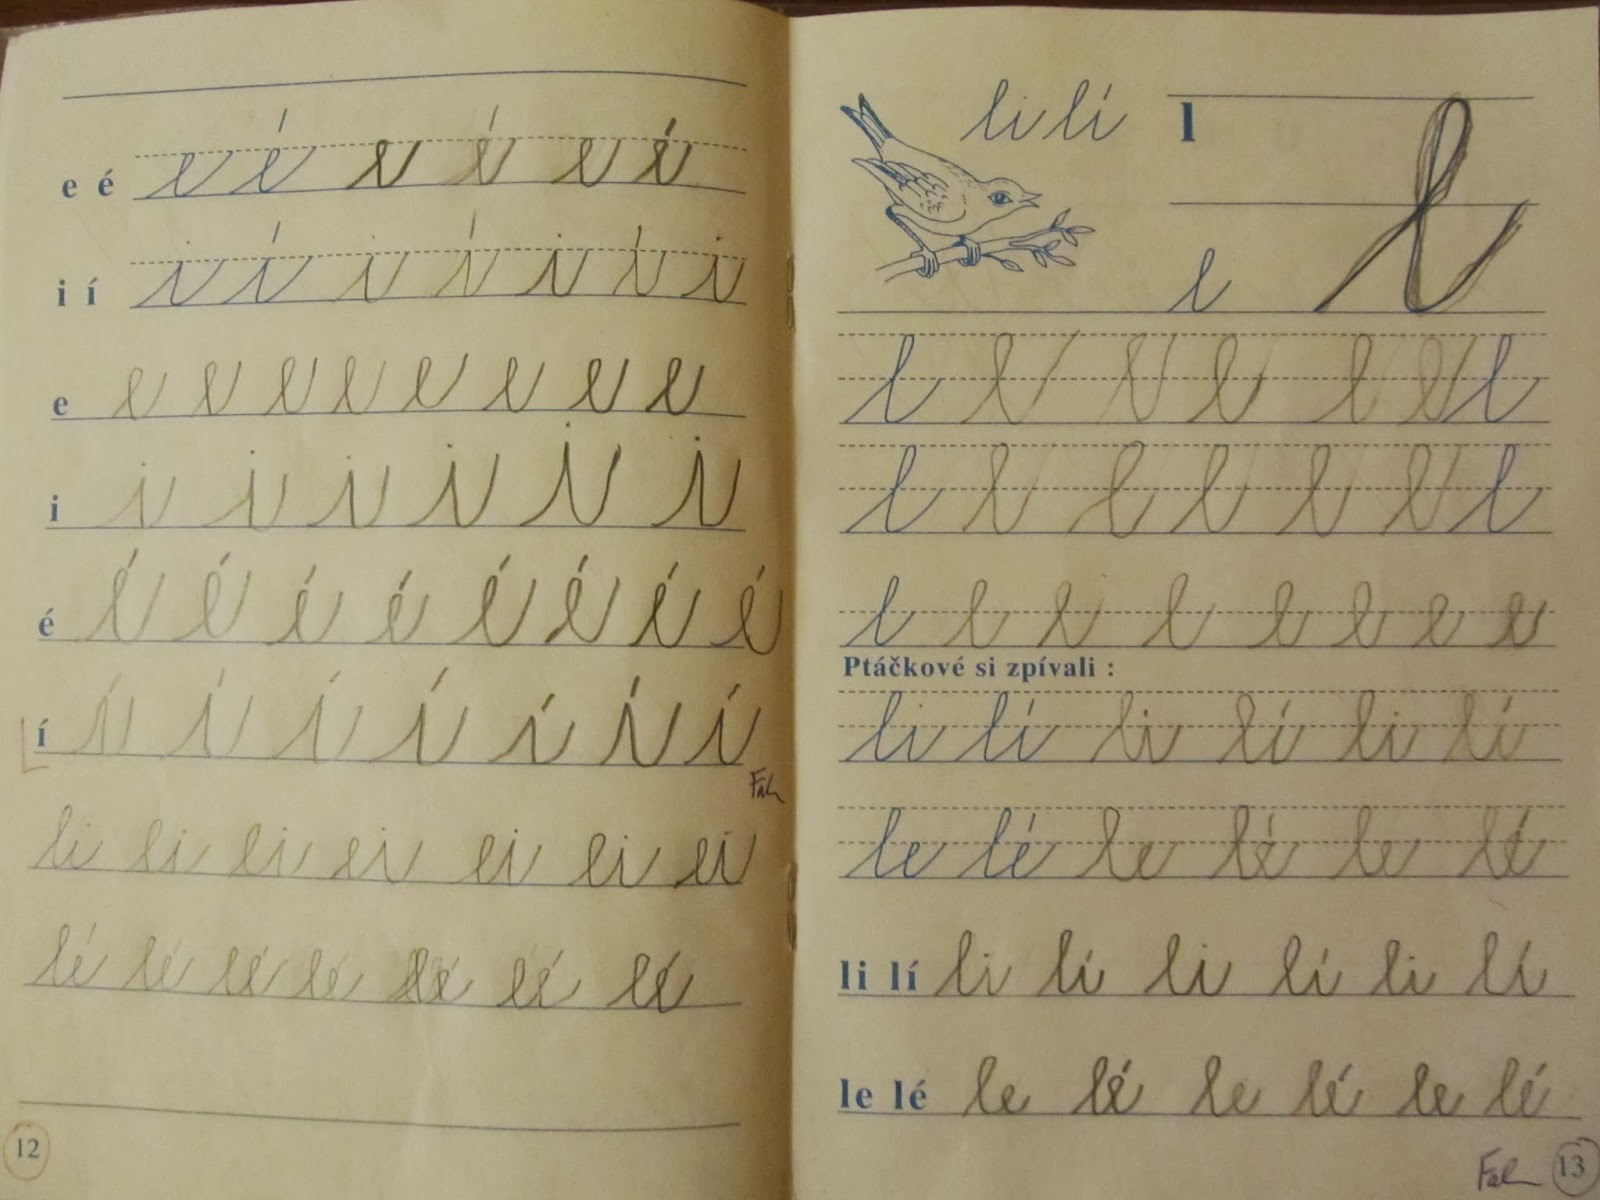 e é e é e é e é
i í i í i í i í i
e e e e e e e e e
i i i i i i i
é é é é é é é é é
í í í í í í í í
li li li li li li li
lé lé lé lé lé lé lé
12
li lí l
l l
l l l l l l l
l l l l l l l
l l l l l l l l
Ptáčkové si zpívali :
li lí li lí li lí
le lé le lé le lé
li lí li lí li lí li lí
le lé le lé le lé le lé
13